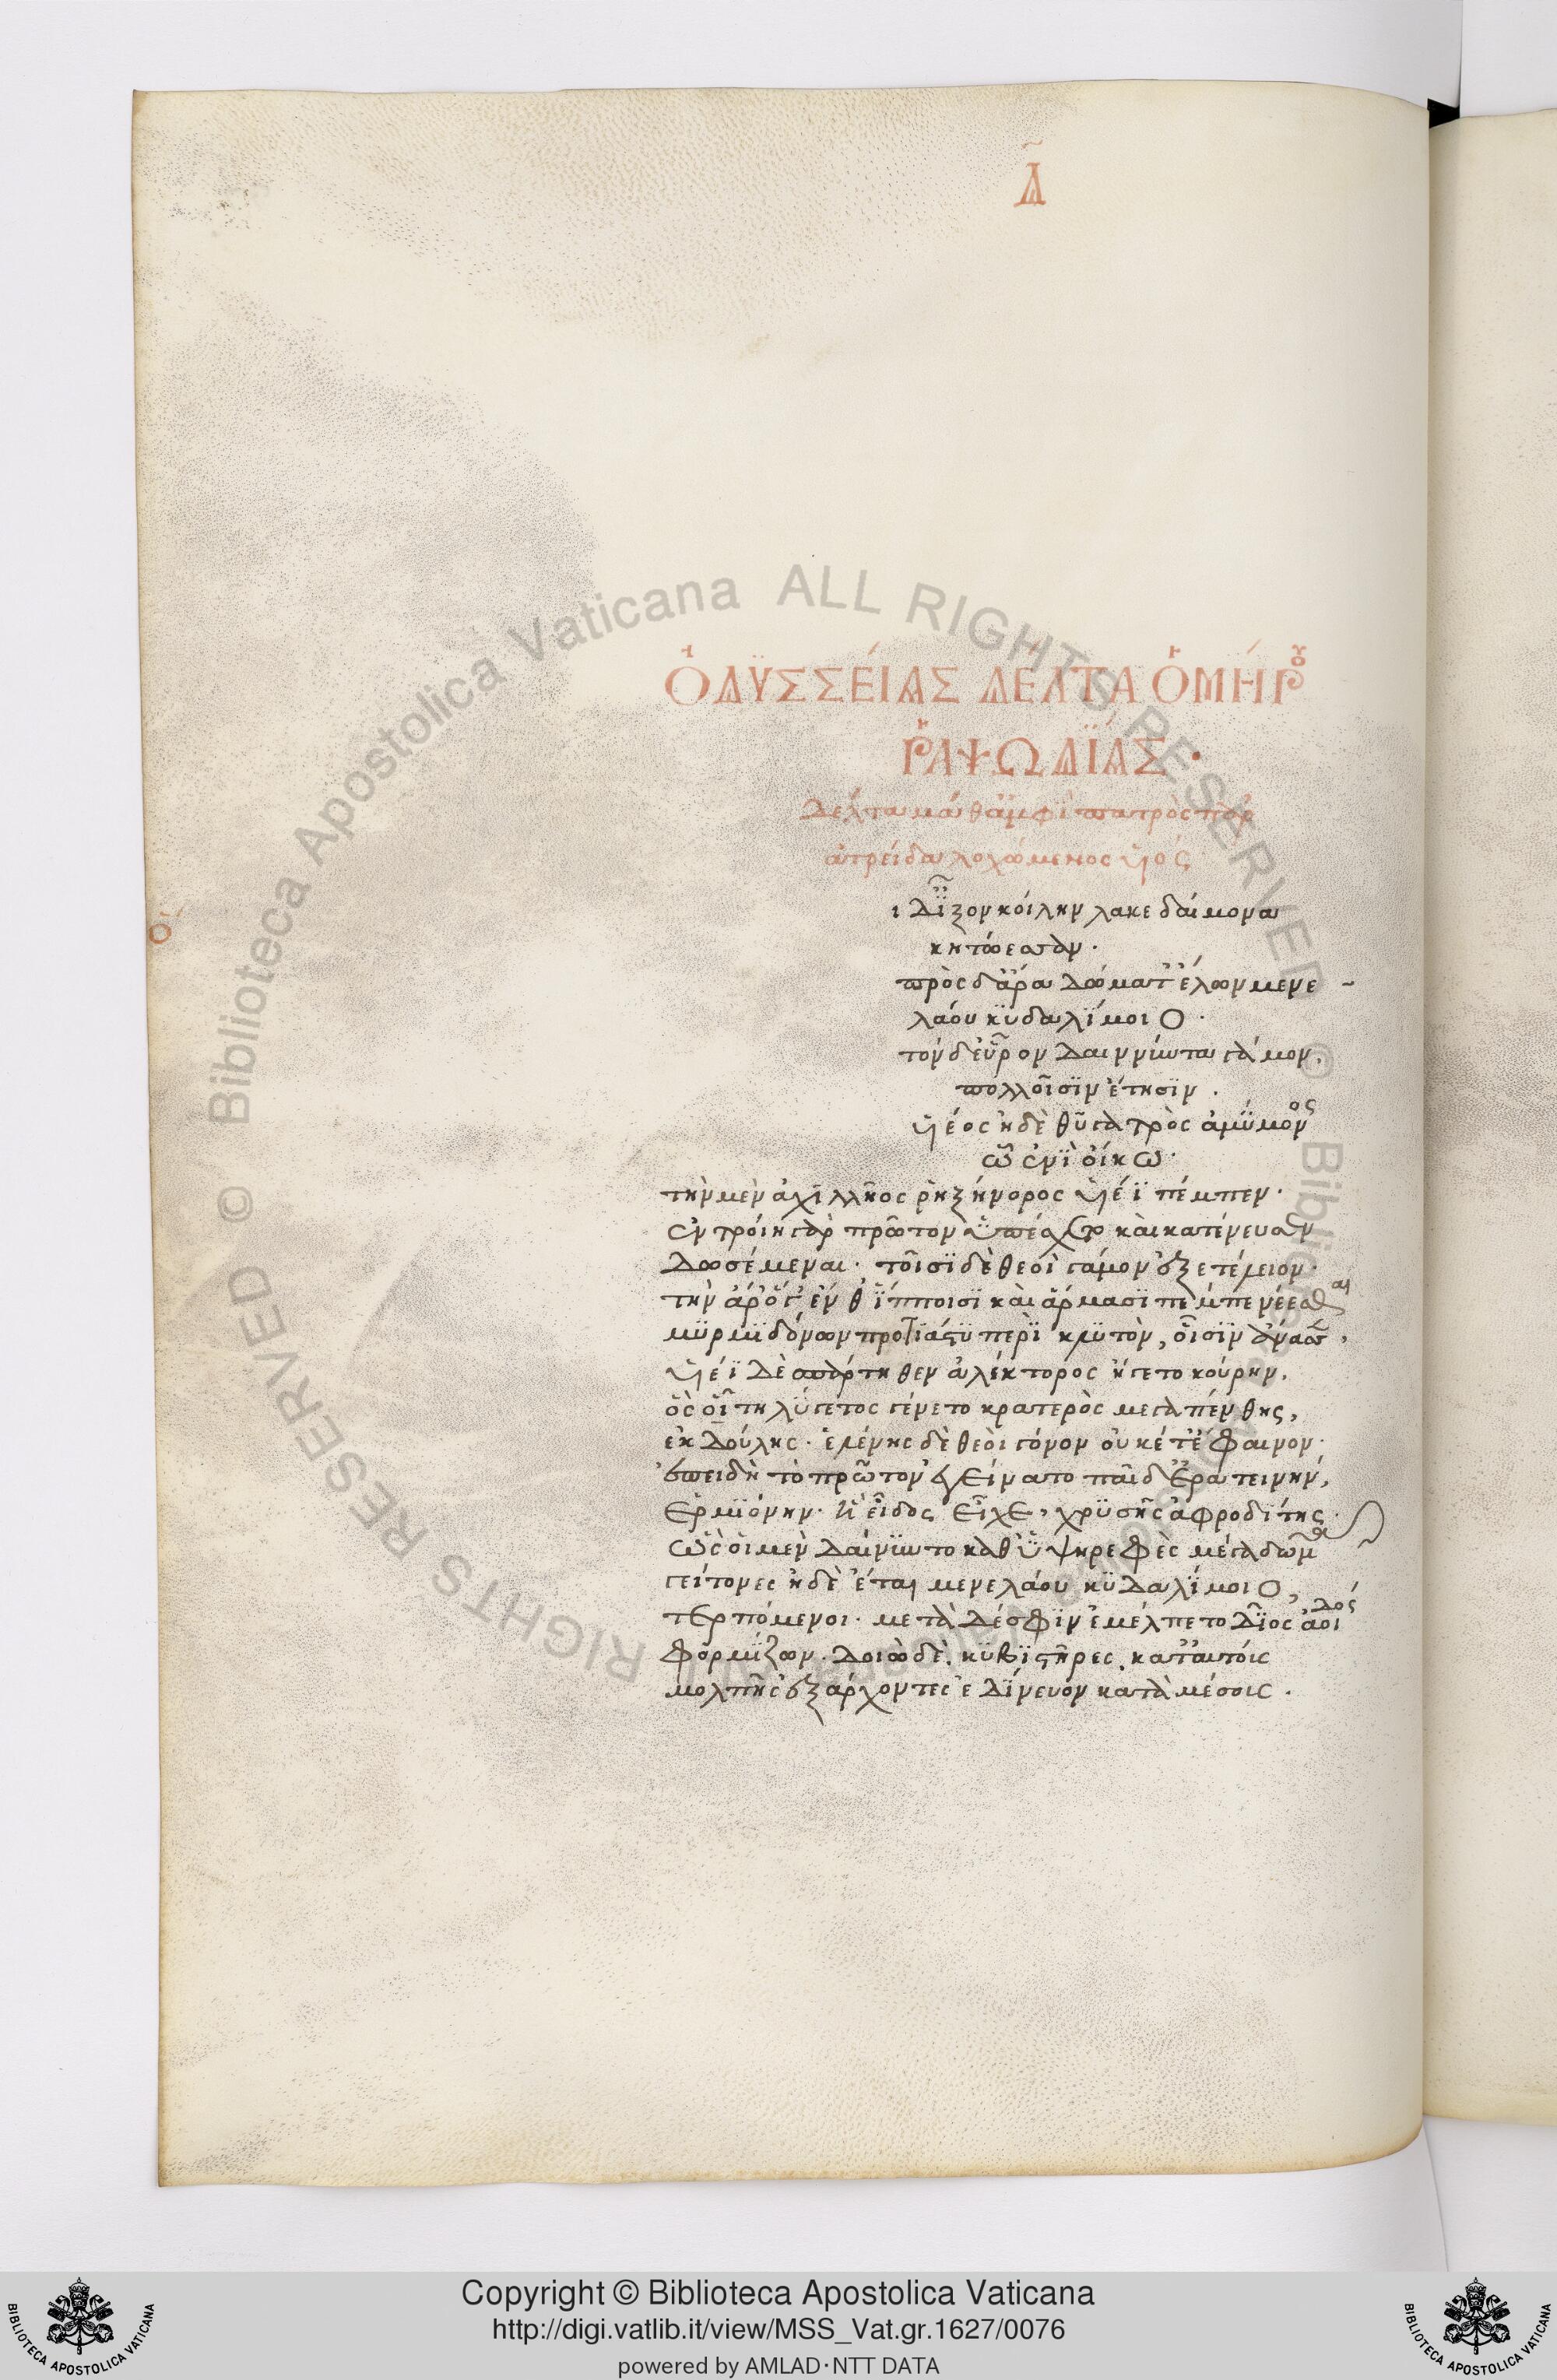 Δ̃
ὈΔΫΣΣΕΊΑΣ ΔΈΛΤΑ ὉΜΉΡΟΥ
ῬΑΨΩΔΪ́ΑΣ·
Δέλτα μάθ' ἀμφὶ πατρὸς παρ'
ἀτρείδα λοχώμενος υἱός
Ο
ι δ' ἷξον κοίλην λακεδαίμονα
κητώεσσαν·
πρὸς δ' ἄρα δώματ' ἔλων μενε-
λάου κϋδαλίμοιο·
τὸν δ' εὗρον δαινύντα γάμον,
πολλοῖσϊν ἔτησϊν.
υἱέος ἠδὲ θϋγατρὸς ἀμϋμονος
ὧ ἐνὶ οἴκω·
τὴν μὲν ἀχϊλλῆος ῥηξήνορος υἱέϊ πέμπεν·
ἐν τροίη γὰρ πρῶτον ὑπέσχετο καὶ κατένευσεν
δωσέμεναι· τοῖσϊ δὲ θεοὶ γάμον ἐξετέλειον·
τὴν ἄρ' ὅγ' ἔνθ' ἵπποισϊ καὶ ἅρμασϊ πέμπε νέεσθαι
μϋρμϊδόνων προτὶ ἄστϋ περϊκλϋτὸν, οἷσϊν ἄνασσε,
υἱέϊ δὲ σπάρτηθεν ἀλέκτορος ἤγετο κούρην,
ὅς οἱ τηλύγετος γένετο κρατερὸς μεγαπένθης,
ἐκ δούλης· ἑλένης δὲ θεοὶ γόνον οὐκέτ' ἔφαινον·
ἐπειδὴ τὸ πρῶτον ἐγείνατο παῖδ' ἐρατεινήν,
Ἑρμϊόνην· ἣ εἶδος εἶχε, χρϋσῆς ἀφροδίτης·
ὣς οἱ μὲν δαίνϋντο καθ' ὑψηρεφὲς μέγα δῶμα
γείτονες ἠδὲ ἔται μενελάου κϋδαλίμοιο,
τερπόμενοι· μετὰ δέ σφϊν ἐμέλπετο δῖος ἀοιδός
φορμίζων· δοιὼ δὲ κϋβϊστῆρες κατ' αὐτοὺς
μολπῆς ἐξάρχοντες ἐδίνευον κατὰ μέσσους.
© Biblioteca Apostolica Vaticana ALL RIGHTS RESERVED © Biblioteca Apostolica Vaticana ALL RIGHTS RESERVED
BIBLIOTECA APOSTOLICA VATICANA
Copyright © Biblioteca Apostolica Vaticana
http://digi.vatlib.it/view/MSS_Vat.gr.1627/0076
powered by AMLAD·NTT DATA
BIBLIOTECA APOSTOLICA VATICANA